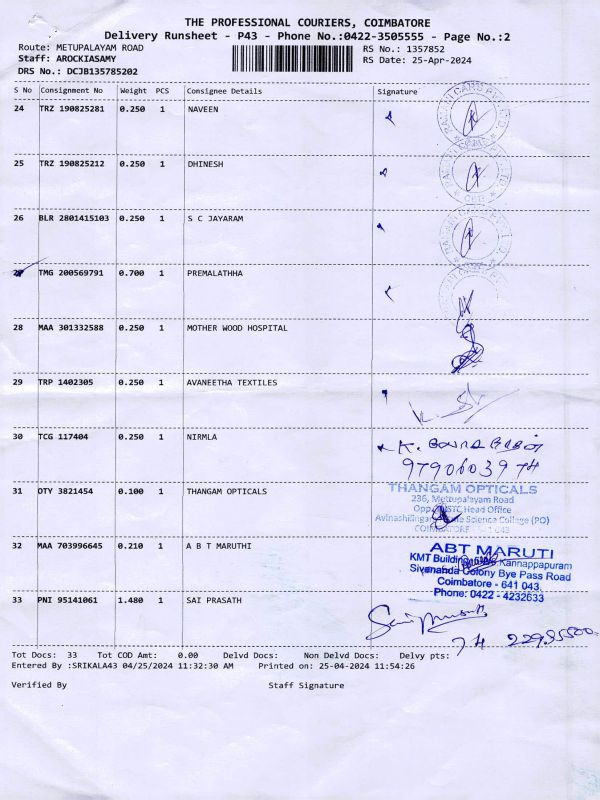 THE PROFESSIONAL COURIERS, COIMBATORE
Delivery Runsheet - P43 - Phone No.:0422-3505555 - Page No.:2
Route: METUPALAYAM ROAD RS No.: 1357852
Staff: AROCKIASAMY RS Date: 25-Apr-2024
DRS No.: DCJB135785202
S No Consignment No Weight PCS Consignee Details Signature
24 TRZ 190825281 0.250 1 NAVEEN
25 TRZ 190825212 0.250 1 DHINESH
26 BLR 2801415103 0.250 1 S C JAYARAM
27 TMG 200569791 0.700 1 PREMALATHHA
28 MAA 301332588 0.250 1 MOTHER WOOD HOSPITAL
29 TRP 1402305 0.250 1 AVANEETHA TEXTILES
30 TCG 117404 0.250 1 NIRMLA K.
31 OTY 3821454 0.100 1 THANGAM OPTICALS THANGAM OPTICALS
236, Mettupalayam Road
Head Office
Science College (PO)
32 MAA 703996645 0.210 1 A B T MARUTHI ABT MARUTI
KMT Building Kannappapuram
Sivananda Colony Bye Pass Road
Coimbatore - 641 043.
Phone: 0422 - 4232633
33 PNI 95141061 1.480 1 SAI PRASATH
Tot Docs: 33 Tot COD Amt: 0.00 Delvd Docs: Non Delvd Docs: Delvy pts:
Entered By :SRIKALA43 04/25/2024 11:32:30 AM Printed on: 25-04-2024 11:54:26
Verified By Staff Signature